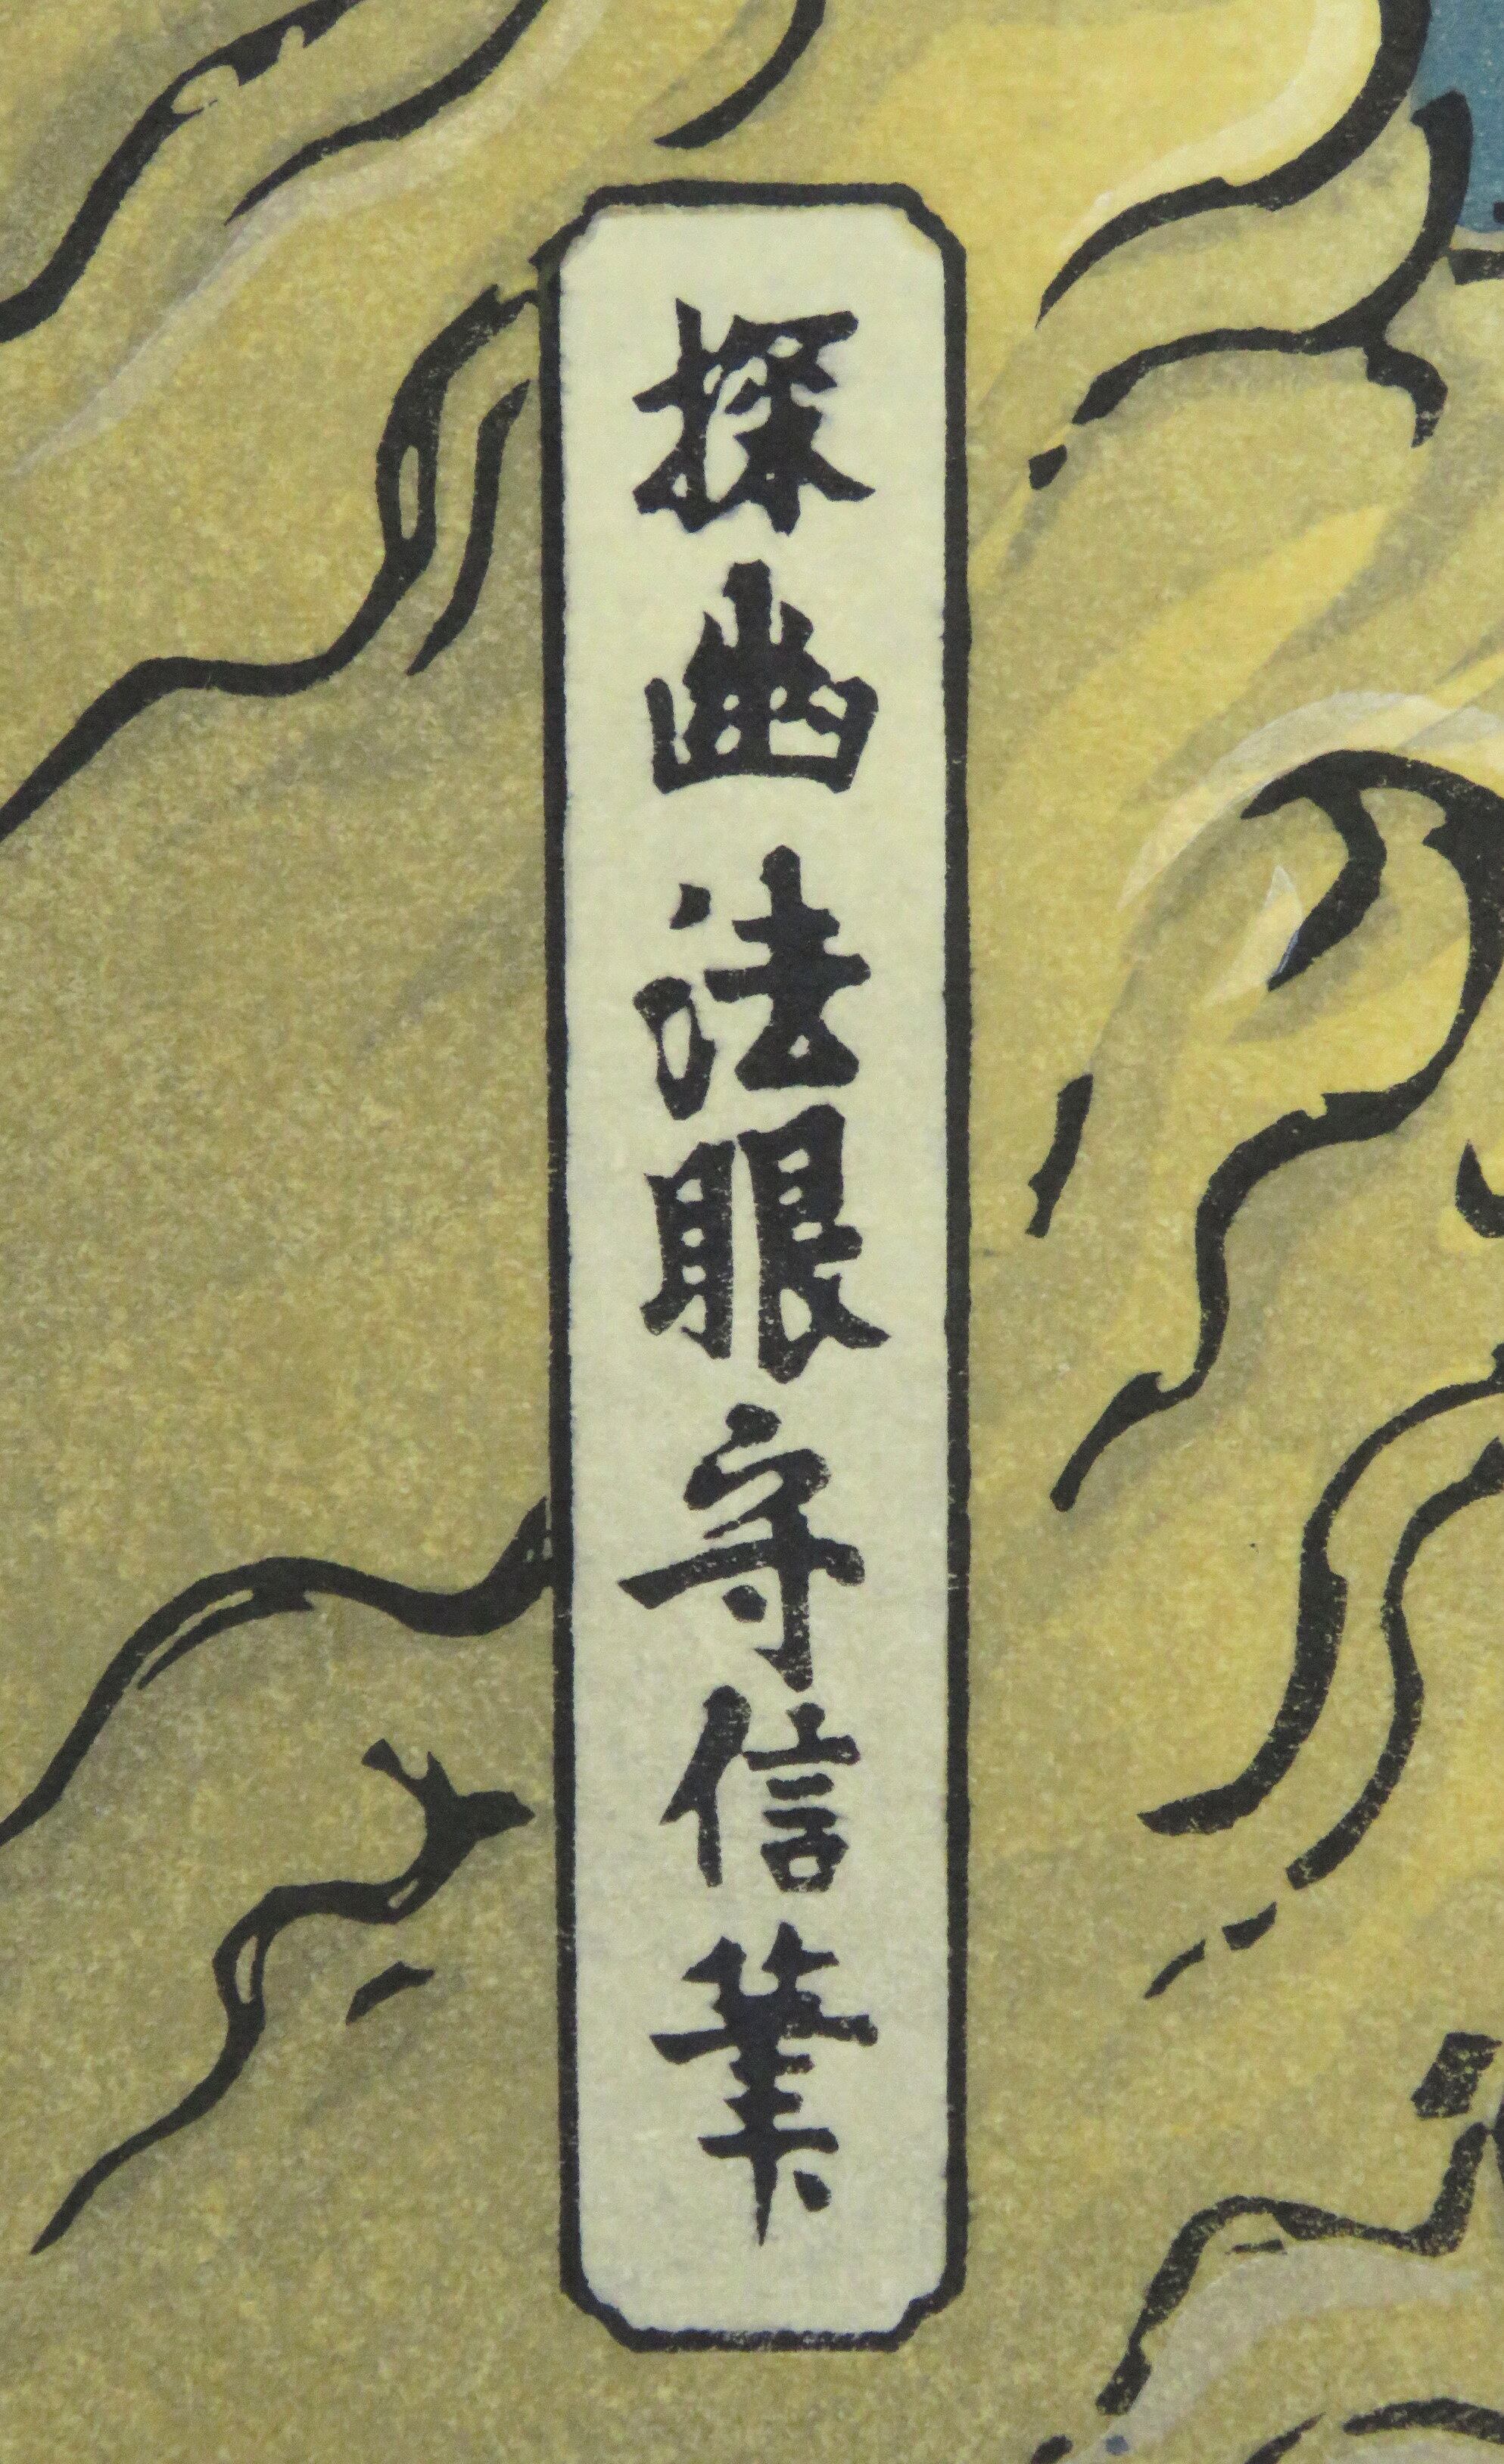 探幽法眼守信筆